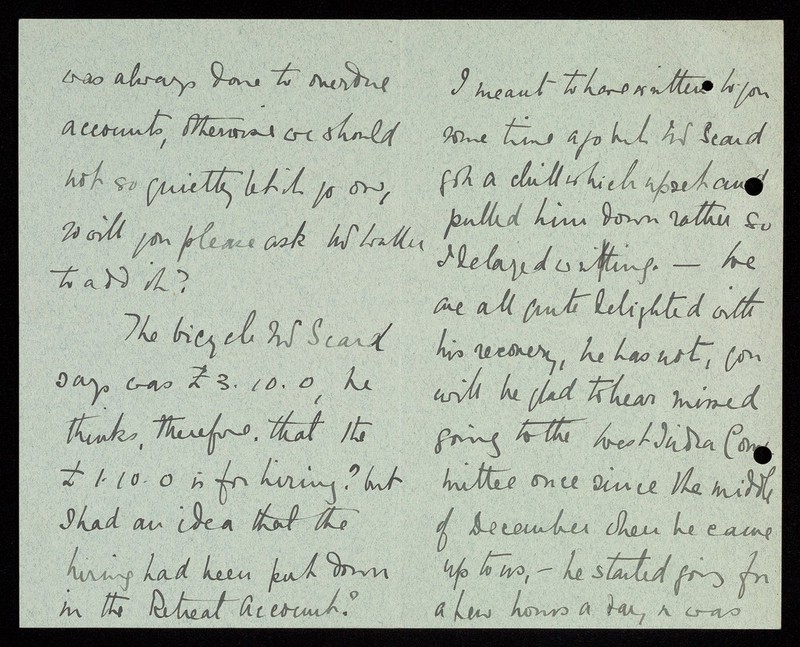 was always done to overdue
accounts, otherwise we should
not so quietly let it go on,
so will you please ask Mr Waller
to add it?
The bicycle Mr Seard
says was £3.10.0, he
thinks, therefore, that the
£1.10.0 is for hiring? but
I had an idea that the
hiring had been put down
in the Retreat Account?
I meant to have written to you
some time ago but Mr Seard
got a chill which upset and
pulled him down rather so
I delayed writing. — We
are all quite delighted with
his recovery, he has not, you
will be glad to hear missed
going to the West India Com
mittee once since the middle
of December when he came
up to us, — he started going for
a few hours a day, & was